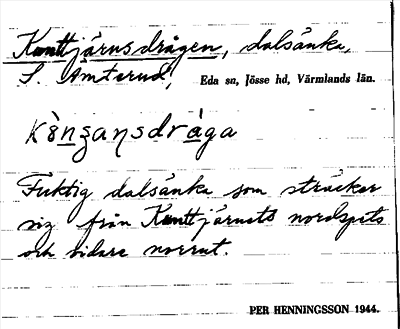 Kunttjärnsdrågen, dalsänka,
S. Ämterud, Eda sn, Jösse hd, Värmlands län.
Fuktig dalsänka som sträcker
sig från Kunttjärnets nordspets
och vidare norrut.
PER HENNINGSSON 1944.